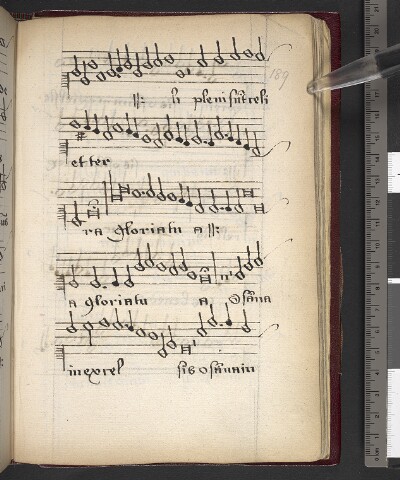 189
:||: li pleni sūt celi
et ter
ra gloria tu a :||:
a gloria tu a osāna
in excel sis osāna in